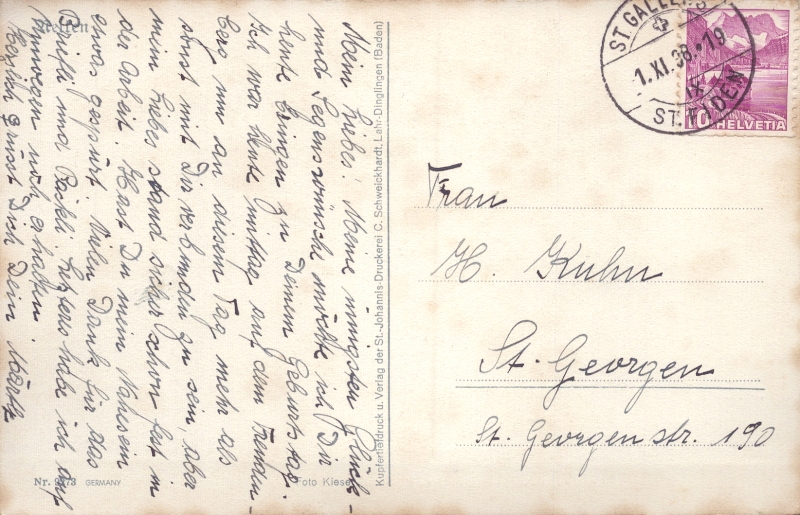 Meine innigsten Glück-
und Segenswünsche möchte ich Dir
heute bringen zu Deinem Geburtstag.
Ich war heute mittag auf dem Freuden-
berg um an diesem Tag mehr als
sonst mit Dir verbunden zu sein, aber
mein Liebes stand sicher schon fest in
der Arbeit. Hast Du mein Nahsein
etwas gespürt. Vielen Dank für das
Briefli und Päckli. Letzteres habe ich auf
noch erhalten.
Herzlich grüsst Dich Dein
Nr. 9473 GERMANY
Foto Kiesel
Kupfertiefdruck u. Verlag der St.-Johannis-Druckerei C. Schweickhardt, Lahr-Dinglingen (Baden)
ST. GALLEN
1.XI.38.-19
IX
ST. FIDEN
10 HELVETIA
Frau
H. Kuhn
St. Georgen
St. Georgenstr. 190